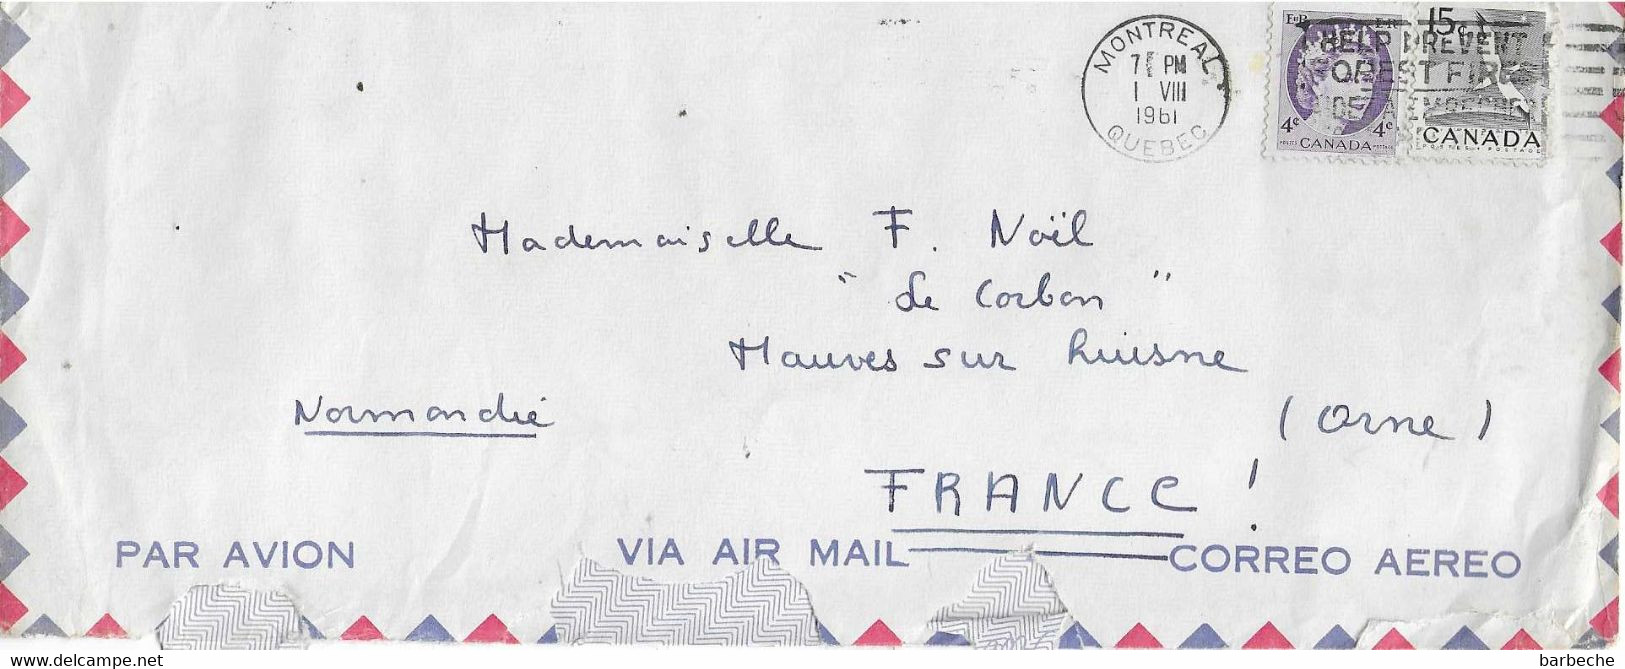 MONTREAL
7 PM
1 VIII
1961
QUEBEC
EIIR EIIR
4¢ 4¢
POSTES CANADA POSTAGE
15¢
CANADA
POSTES • POSTAGE
HELP PREVENT
FOREST FIRES
Mademoiselle F. Noël
"Le Corbon"
Mauves sur huisne
Normandie
(Orne)
FRANCE !
PAR AVION VIA AIR MAIL CORREO AEREO
www.delcampe.net
barbeche